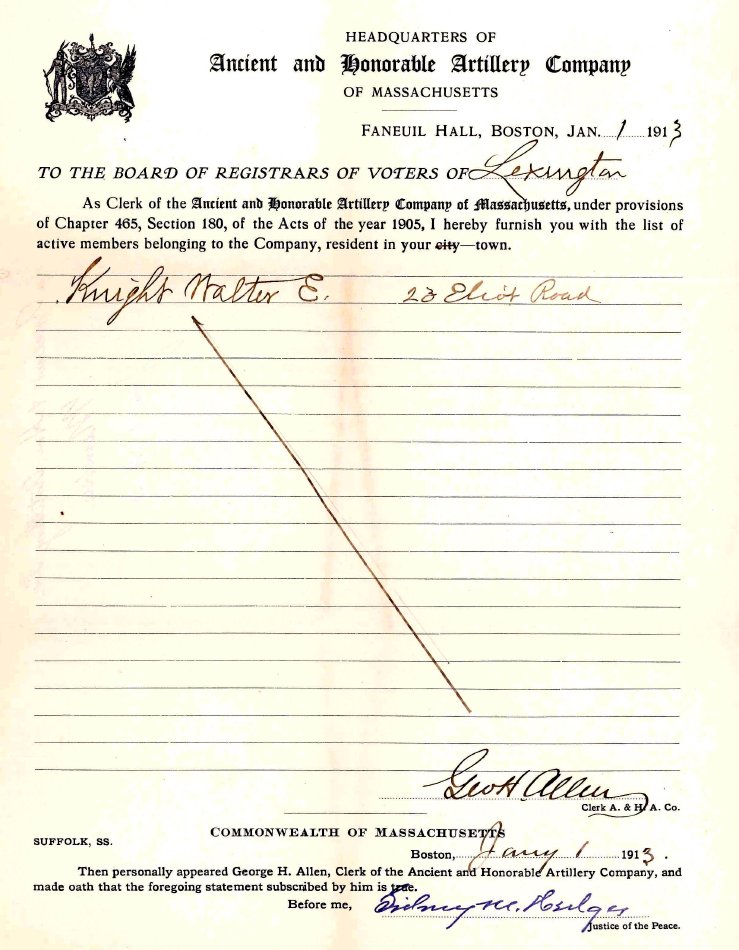 HEADQUARTERS OF
Ancient and Honorable Artillery Company
OF MASSACHUSETTS
FANEUIL HALL, BOSTON, JAN. 1 1913
TO THE BOARD OF REGISTRARS OF VOTERS OF Lexington
As Clerk of the Ancient and Honorable Artillery Company of Massachusetts, under provisions
of Chapter 465, Section 180, of the Acts of the year 1905, I hereby furnish you with the list of
active members belonging to the Company, resident in your city—town.
Knight Walter E. 23 Eliot Road
Geo H. Allen
Clerk A. & H. A. Co.
COMMONWEALTH OF MASSACHUSETTS
SUFFOLK, SS.
Boston, Jany 1 1913.
Then personally appeared George H. Allen, Clerk of the Ancient and Honorable Artillery Company, and
made oath that the foregoing statement subscribed by him is true.
Before me, Sidney M. Hedges
Justice of the Peace.